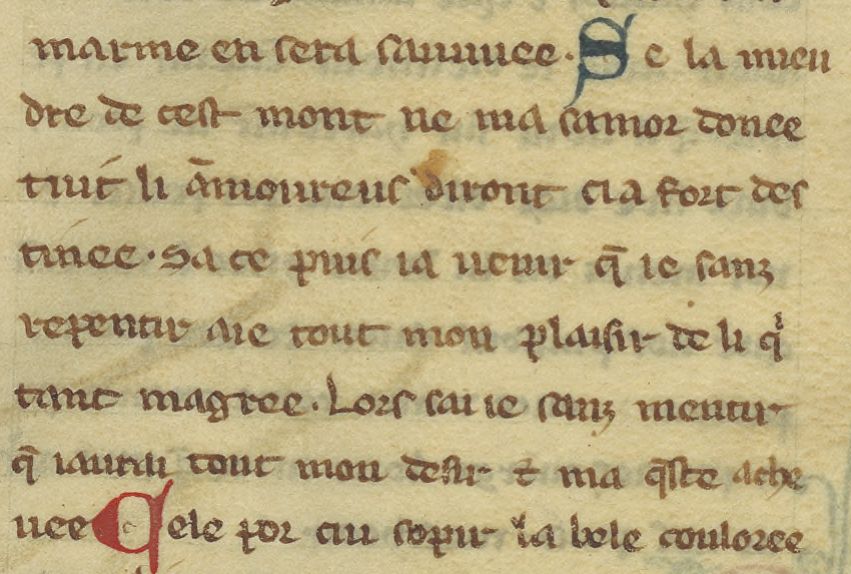 marme en sera sauuuee. Se la mieu
dre de cest mont ne ma samor donee
tuit li āmoureus diront ci a fort des
tinee. Sa ce puis ia uenir q̄ ie sanz
repentir aie tout mon plaisir de li qͥ
tant magree. Lors sai ie sanz mentir
q̄ iaurai tout mon desir ⁊ ma q̄ste ache
uee Cele por cui sopir la bele couloree